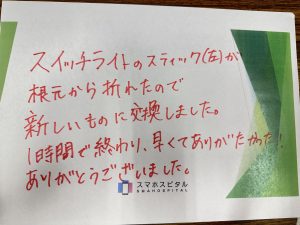 スイッチライトのスティック(左)が
根元から折れたので
新しいものに交換しました。
1時間で終わり、早くてありがたかった!
ありがとうございました。
スマホスピタル
SMAHOSPITAL